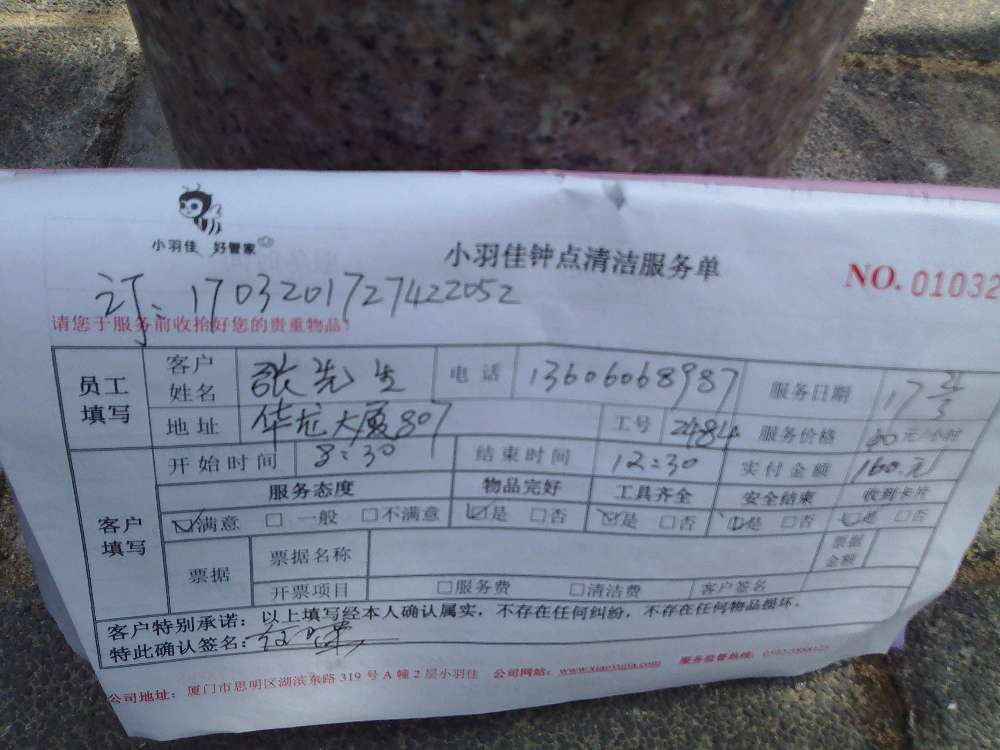 小羽佳 好管家
小羽佳钟点清洁服务单
NO. 01032
订: 1703201727422052
请您于服务前收拾好您的贵重物品!
员工填写 客户姓名 张先生 电话 13606068987 服务日期 17
地址 华龙大厦807 工号 2484 服务价格 元/小时
开始时间 8:30 结束时间 12:30 实付金额 160.元
客户填写 服务态度 物品完好 工具齐全 安全结束 收到卡片
☑满意 □一般 □不满意 ☑是 □否 ☑是 □否 ☑是 □否 ☑是 □否
票据 票据名称 票据金额
开票项目 □服务费 □清洁费 客户签名
客户特别承诺:以上填写经本人确认属实,不存在任何纠纷,不存在任何物品损坏。
特此确认签名:
公司地址:厦门市思明区湖滨东路 319 号 A 幢 2 层小羽佳 公司网站:www.xiaoyujia.com 服务监督热线: